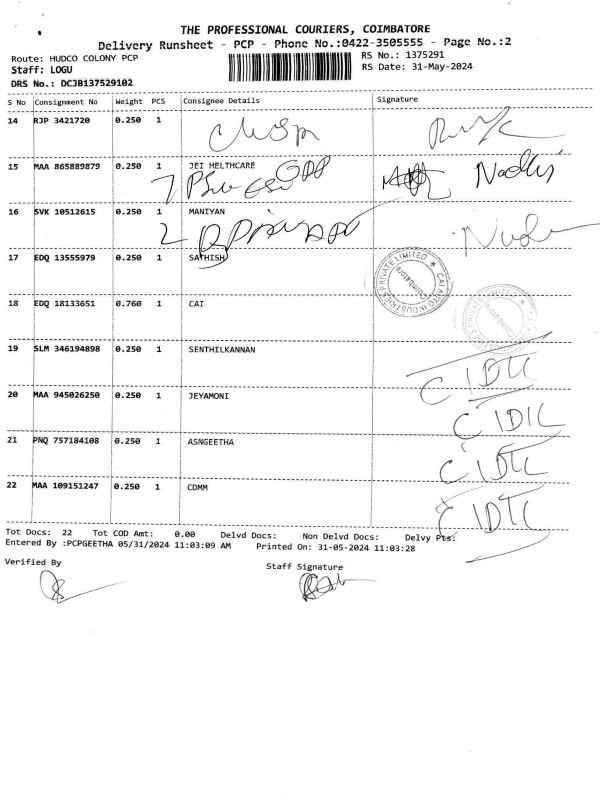 THE PROFESSIONAL COURIERS, COIMBATORE
Delivery Runsheet - PCP - Phone No.:0422-3505555 - Page No.:2
Route: HUDCO COLONY PCP
RS No.: 1375291
Staff: LOGU
RS Date: 31-May-2024
DRS No.: DCJB137529102
S No Consignment No Weight PCS Consignee Details Signature
14 RJP 3421720 0.250 1
15 MAA 865889879 0.250 1 JEI HELTHCARE
16 SVK 10512615 0.250 1 MANIYAN
17 EDQ 13555979 0.250 1 SATHISH
CAI INDUSTRIES PRIVATE LIMITED Coimbatore
18 EDQ 18133651 0.760 1 CAI
19 SLM 346194898 0.250 1 SENTHILKANNAN
20 MAA 945026250 0.250 1 JEYAMONI
21 PNQ 757184108 0.250 1 ASNGEETHA
22 MAA 109151247 0.250 1 CDMM
Tot Docs: 22 Tot COD Amt: 0.00 Delvd Docs: Non Delvd Docs: Delvy Pts:
Entered By :PCPGEETHA 05/31/2024 11:03:09 AM Printed On: 31-05-2024 11:03:28
Verified By
Staff Signature